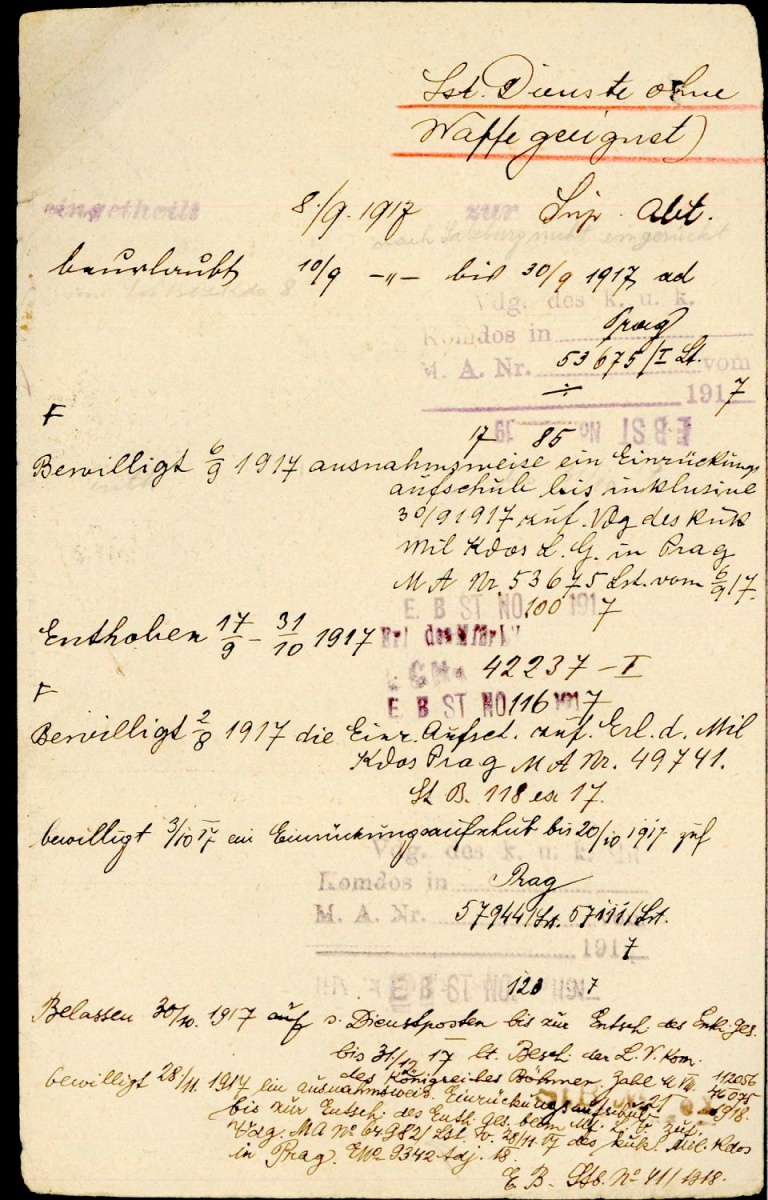 Lst. Dienste ohne
Waffe geeignet)
eingetheilt 8./9. 1917 zur Abt.
nach Salzburg nicht eingerückt
beurlaubt 10/9 -"- bis 30/9 1917 ad
Vdg. des k. u. k.
Komdos in Prag
M. A. Nr. 53675/I Lst. vom
÷ 1917
E B ST No 19
17 85
F
Bewilligt 6/9 1917 ausnahmsweise ein Einrückungs
aufschub bis inklusive
30/9 1917 zuf. Vdg des kuk
Mil Kdos L. G. in Prag
M A Nr. 53675 Lst. vom 6/9 17.
E. B ST NO 100 1917
Enthoben 17/9 - 31/10 1917 Erl des
42237-I
E B ST NO 116 1917
F
Bewilligt 2/8 1917 die Einr. Aufsch. zuf. Erl. d. Mil
Kdos Prag M A Nr. 49741.
St B. 118 ex 17.
bewilligt 3/10 17 ein Einrückungsaufschub bis 20/10 1917 zuf
Vdg. des k. u. k.
Komdos in Prag
M. A. Nr. 57944/Lst. 57111/Lst.
1917
123 7
Belassen 30/10. 1917 auf s. Dienstposten bis zur Entsch. des Enth. Ges.
bis 31/12 17 lt. Besch. der L. V. Kom.
des Königreiches Böhmen, Zahl 112056
bewilligt 28/11. 1917 ein ausnahmsweis. Einrückungsaufschub
bis zur Entsch. des Enth. Ges. beim M. f. L. V. zuf.
Vdg. MA No 64982/Lst. v. 28/11. 17 des kuk. Mil. Kdos
in Prag. E No 9342 Adj. 18.
E. B. Stb. No 41/1918.